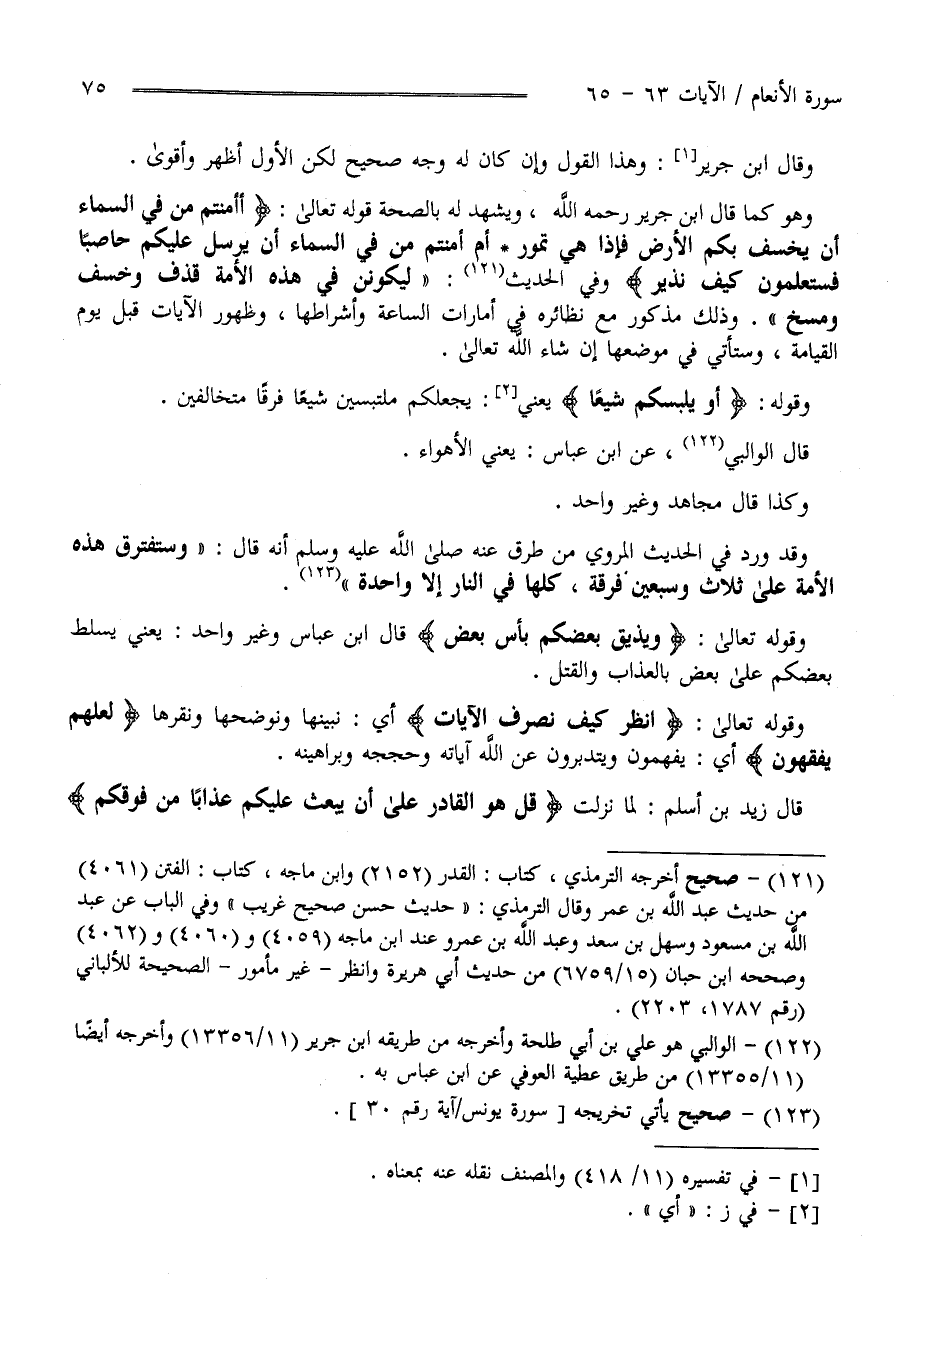 سورة الأنعام / الآيات ٦٣ - ٦٥ ٧٥
وقال ابن جرير[١] : وهذا القول وإن كان له وجه صحيح لكن الأول أظهر وأقوىٰ .
وهو كما قال ابن جرير رحمه اللَّه ، ويشهد له بالصحة قوله تعالىٰ : ﴿ أأمنتم من في السماء
أن يخسف بكم الأرض فإذا هي تمور * أم أمنتم من في السماء أن يرسل عليكم حاصبًا
فستعلمون كيف نذير ﴾ وفي الحديث(١٢١) : « ليكونن في هذه الأمة قذف وخسف
ومسخ » . وذلك مذكور مع نظائره في أمارات الساعة وأشراطها ، وظهور الآيات قبل يوم
القيامة ، وستأتي في موضعها إن شاء اللَّه تعالىٰ .
وقوله : ﴿ أو يلبسكم شيعًا ﴾ يعني[٢] : يجعلكم ملتبسين شيعًا فرقًا متخالفين .
قال الوالبي(١٢٢) ، عن ابن عباس : يعني الأهواء .
وكذا قال مجاهد وغير واحد .
وقد ورد في الحديث المروي من طرق عنه صلىٰ اللَّه عليه وسلم أنه قال : « وستفترق هذه
الأمة علىٰ ثلاث وسبعين فرقة ، كلها في النار إلا واحدة »(١٢٣) .
وقوله تعالىٰ : ﴿ ويذيق بعضكم بأس بعض ﴾ قال ابن عباس وغير واحد : يعني يسلط
بعضكم علىٰ بعض بالعذاب والقتل .
وقوله تعالىٰ : ﴿ انظر كيف نصرف الآيات ﴾ أي : نبينها ونوضحها ونقرها ﴿ لعلهم
يفقهون ﴾ أي : يفهمون ويتدبرون عن اللَّه آياته وحججه وبراهينه .
قال زيد بن أسلم : لما نزلت ﴿ قل هو القادر علىٰ أن يبعث عليكم عذابًا من فوقكم ﴾
(١٢١) - صحيح أخرجه الترمذي ، كتاب : القدر (٢١٥٢) وابن ماجه ، كتاب : الفتن (٤٠٦١)
من حديث عبد اللَّه بن عمر وقال الترمذي : « حديث حسن صحيح غريب » وفي الباب عن عبد
اللَّه بن مسعود وسهل بن سعد وعبد اللَّه بن عمرو عند ابن ماجه (٤٠٥٩) و (٤٠٦٠) و (٤٠٦٢)
وصححه ابن حبان (٦٧٥٩/١٥) من حديث أبي هريرة وانظر - غير مأمور - الصحيحة للألباني
(رقم ١٧٨٧، ٢٢٠٣) .
(١٢٢) - الوالبي هو علي بن أبي طلحة وأخرجه من طريقه ابن جرير (١٣٣٥٦/١١) وأخرجه أيضًا
(١٣٣٥٥/١١) من طريق عطية العوفي عن ابن عباس به .
(١٢٣) - صحيح يأتي تخريجه [ سورة يونس/آية رقم ٣٠ ] .
[١] - في تفسيره (١١/ ٤١٨) والمصنف نقله عنه بمعناه .
[٢] - في ز : « أي » .